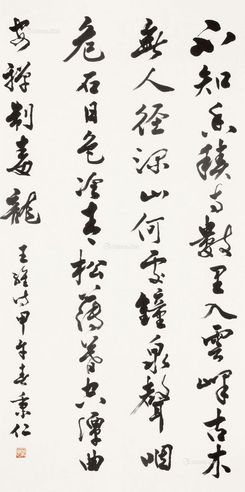 不知香積寺數里入雲峰古木
無人徑深山何處鐘泉聲咽
危石日色冷青松薄暮空潭曲
安禪制毒龍
王維詩甲午春秉仁